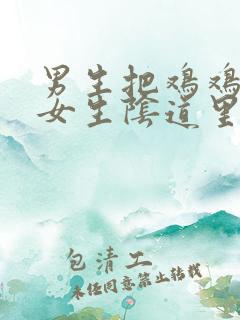 男生把鸡鸡
女生陰道里
包清工
未经同意禁止转载